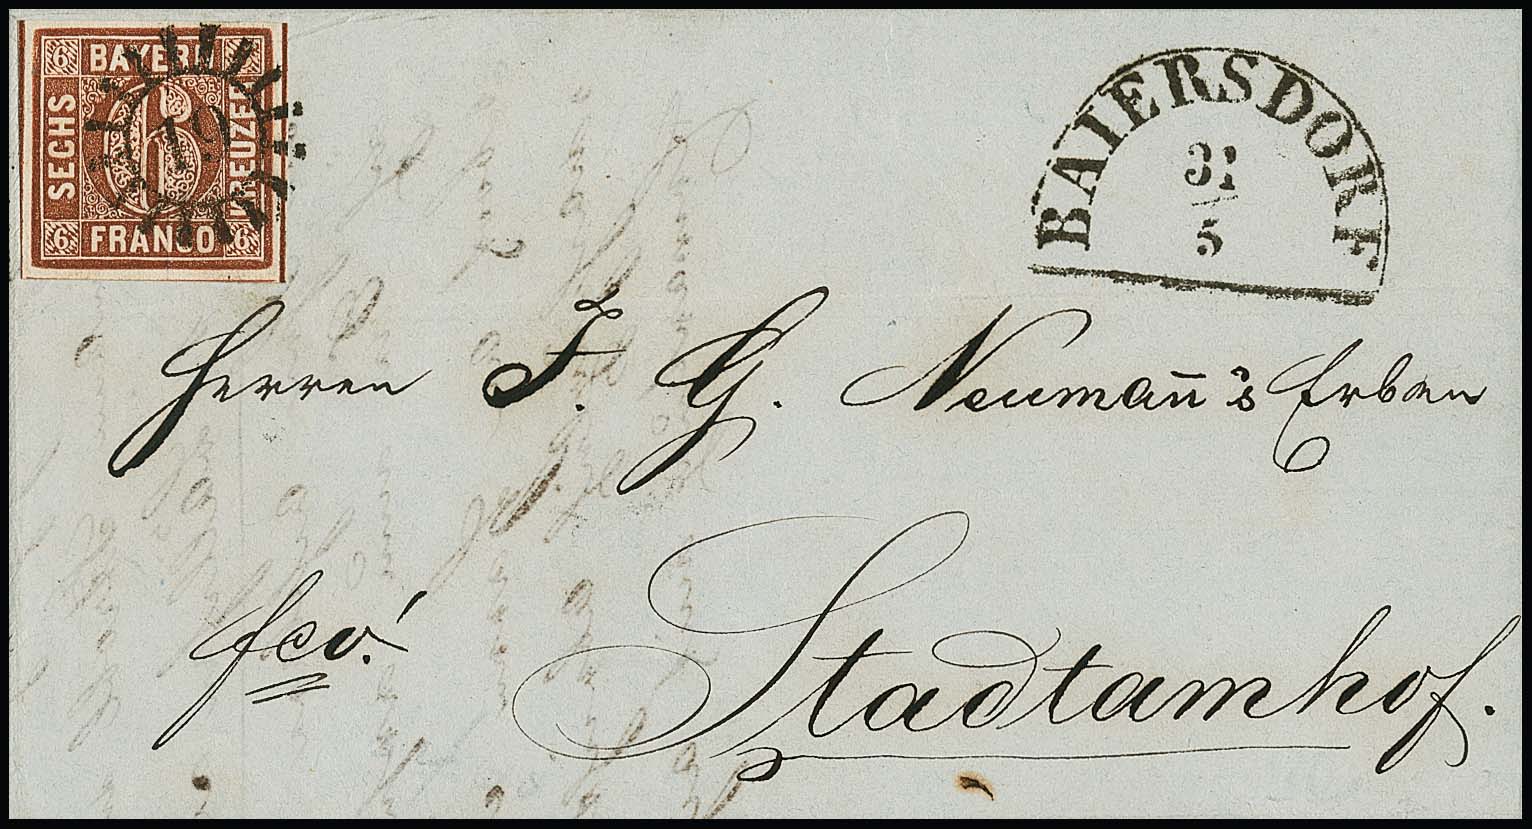 6 BAYERN
SECHS 6 KREUZER
19
6 FRANCO 6
BAIERSDORF
31
5
Herren J. G. Neumañ's Erben
fco!
Stadtamhof.